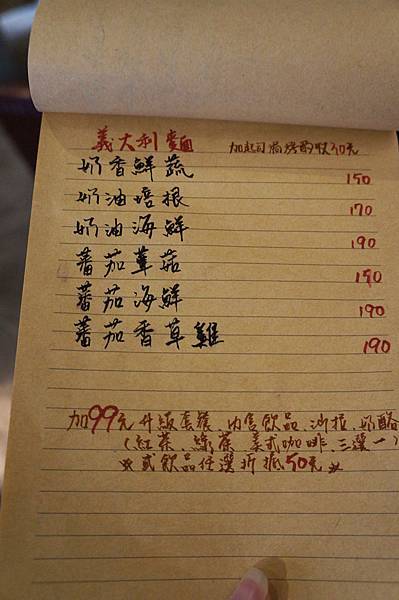 義大利麵 加起司焗烤酌收40元
奶香鮮蔬 150
奶油培根 170
奶油海鮮 190
蕃茄蕈菇 150
蕃茄海鮮 190
蕃茄香草雞 190
加99元升級套餐、內含飲品、沙拉、奶酪
(紅茶、綠茶、美式咖啡、三選一)
※或飲品任選折抵50元※